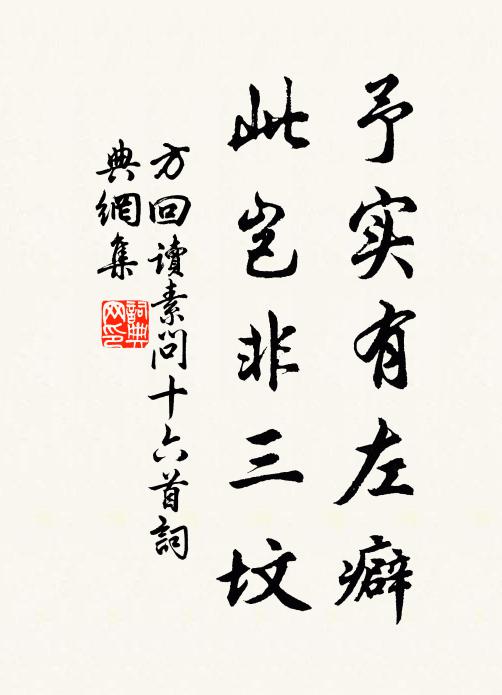 予实有左癖
此岂非三坟
方回讀素問十六首詞
典網集
詞典
网印